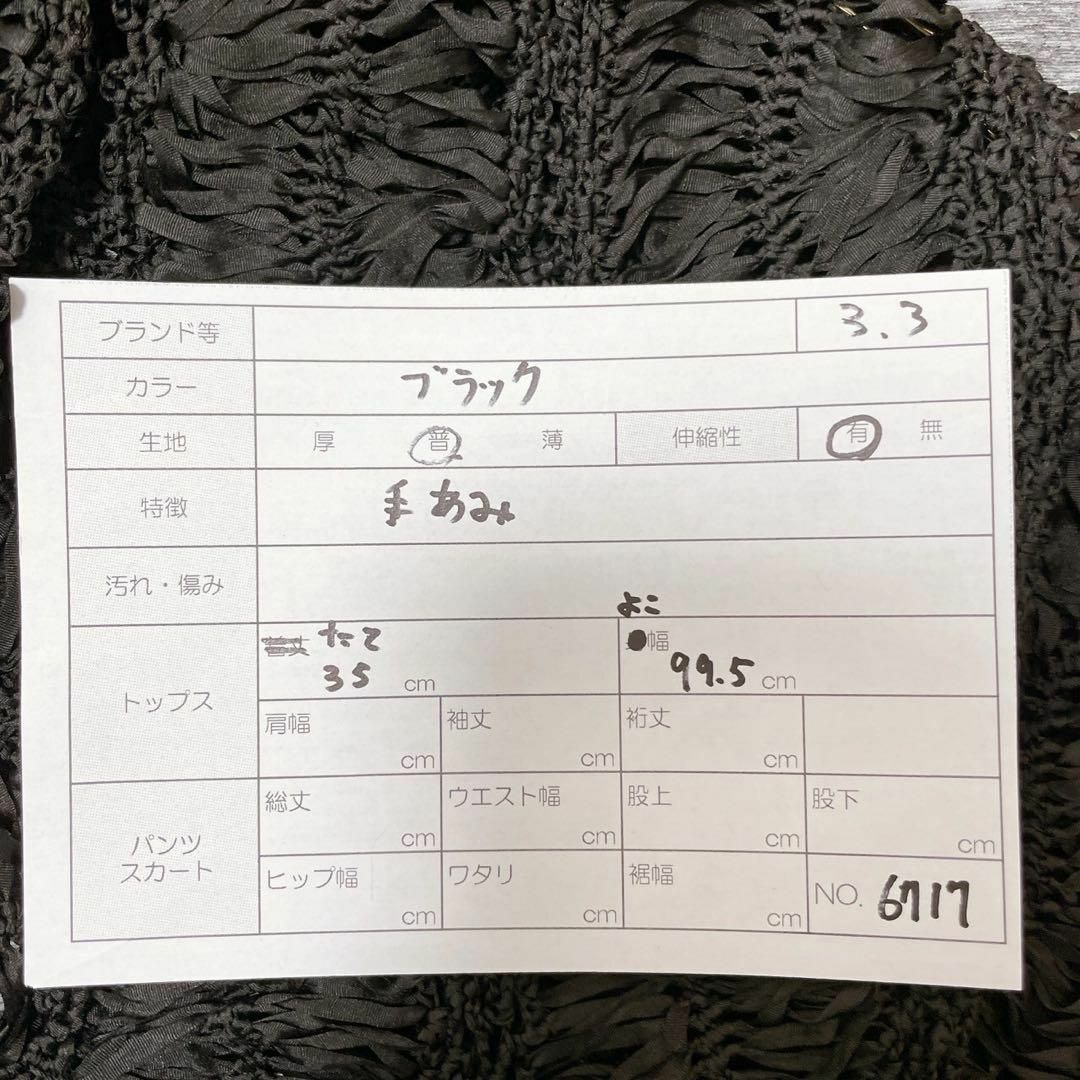 ブランド等 3.3
カラー ブラック
生地 厚 普 薄 伸縮性 有 無
特徴 手あみ
汚れ・傷み
よこ
着丈 たて 幅
トップス 35 cm 99.5 cm
肩幅 cm 袖丈 cm 裄丈 cm
総丈 cm ウエスト幅 cm 股上 cm 股下 cm
パンツ
スカート
ヒップ幅 cm ワタリ cm 裾幅 cm NO. 6717